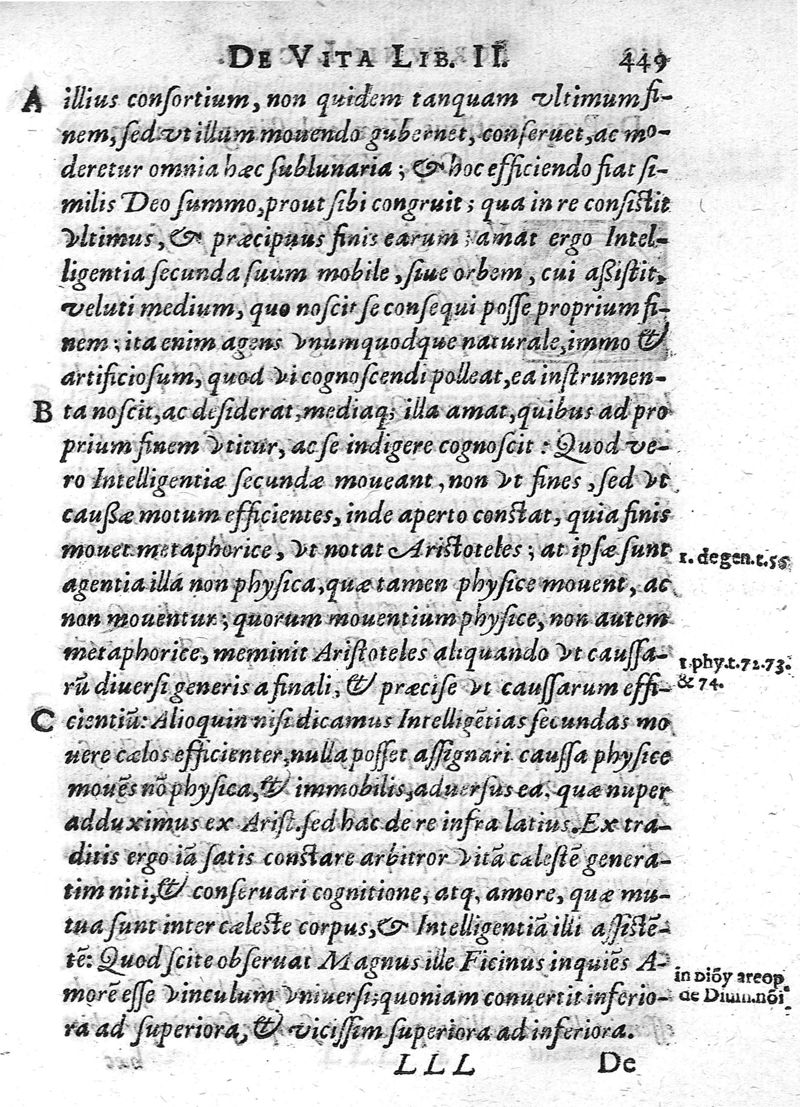 DE VITA LIB. II. 449
A illius conſortium, non quidem tanquam vltimum fi-
nem, ſed vt illum mouendo gubernet, conſeruet, ac mo-
deretur omnia hæc ſublunaria; & hoc efficiendo fiat ſi-
milis Deo ſummo, prout ſibi congruit; qua in re conſiſtit
vltimus, & præcipuus finis earum; amat ergo Intel-
ligentia ſecunda ſuum mobile, ſiue orbem, cui aßiſtit,
veluti medium, quo noſcit ſe conſequi poſſe proprium fi-
nem; ita enim agens vnumquodque naturale, immo &
artificioſum, quod vi cognoſcendi polleat, ea inſtrumen-
B ta noſcit, ac deſiderat, mediaq; illa amat, quibus ad pro
prium finem vtitur, ac ſe indigere cognoſcit: Quod ve-
ro Intelligentiæ ſecundæ moueant, non vt fines, ſed vt
cauſſæ motum efficientes, inde aperto conſtat, quia finis
mouet metaphorice, vt notat Ariſtoteles; at ipſæ ſunt
1. de gen. t. 55
agentia illa non phyſica, quæ tamen phyſice mouent, ac
non mouentur; quorum mouentium phyſice, non autem
metaphorice, meminit Ariſtoteles aliquando vt cauſſa-
1. phy. t. 72. 73.
rū diuerſi generis a finali, & præciſe vt cauſſarum effi-
& 74.
C cientiū: Alioquin niſi dicamus Intelligētias ſecundas mo
uere cælos efficienter, nulla poſſet aſſignari cauſſa phyſice
mouēs nō phyſica, & immobilis, aduerſus ea, quæ nuper
adduximus ex Ariſt. ſed hac de re infra latius. Ex tra-
ditis ergo iā ſatis conſtare arbitror vitā cæleſtē genera-
tim niti, & conſeruari cognitione, atq, amore, quæ mu-
tua ſunt inter cæleſte corpus, & Intelligentiā illi aſſiſtē-
tē: Quod ſcite obſeruat Magnus ille Ficinus inquiēs A-
in Diōy areop.
morē eſſe vinculum vniuerſi; quoniam conuertit inferio-
de Diuin. nōi
ra ad ſuperiora, & viciſſim ſuperiora ad inferiora.
LLL De